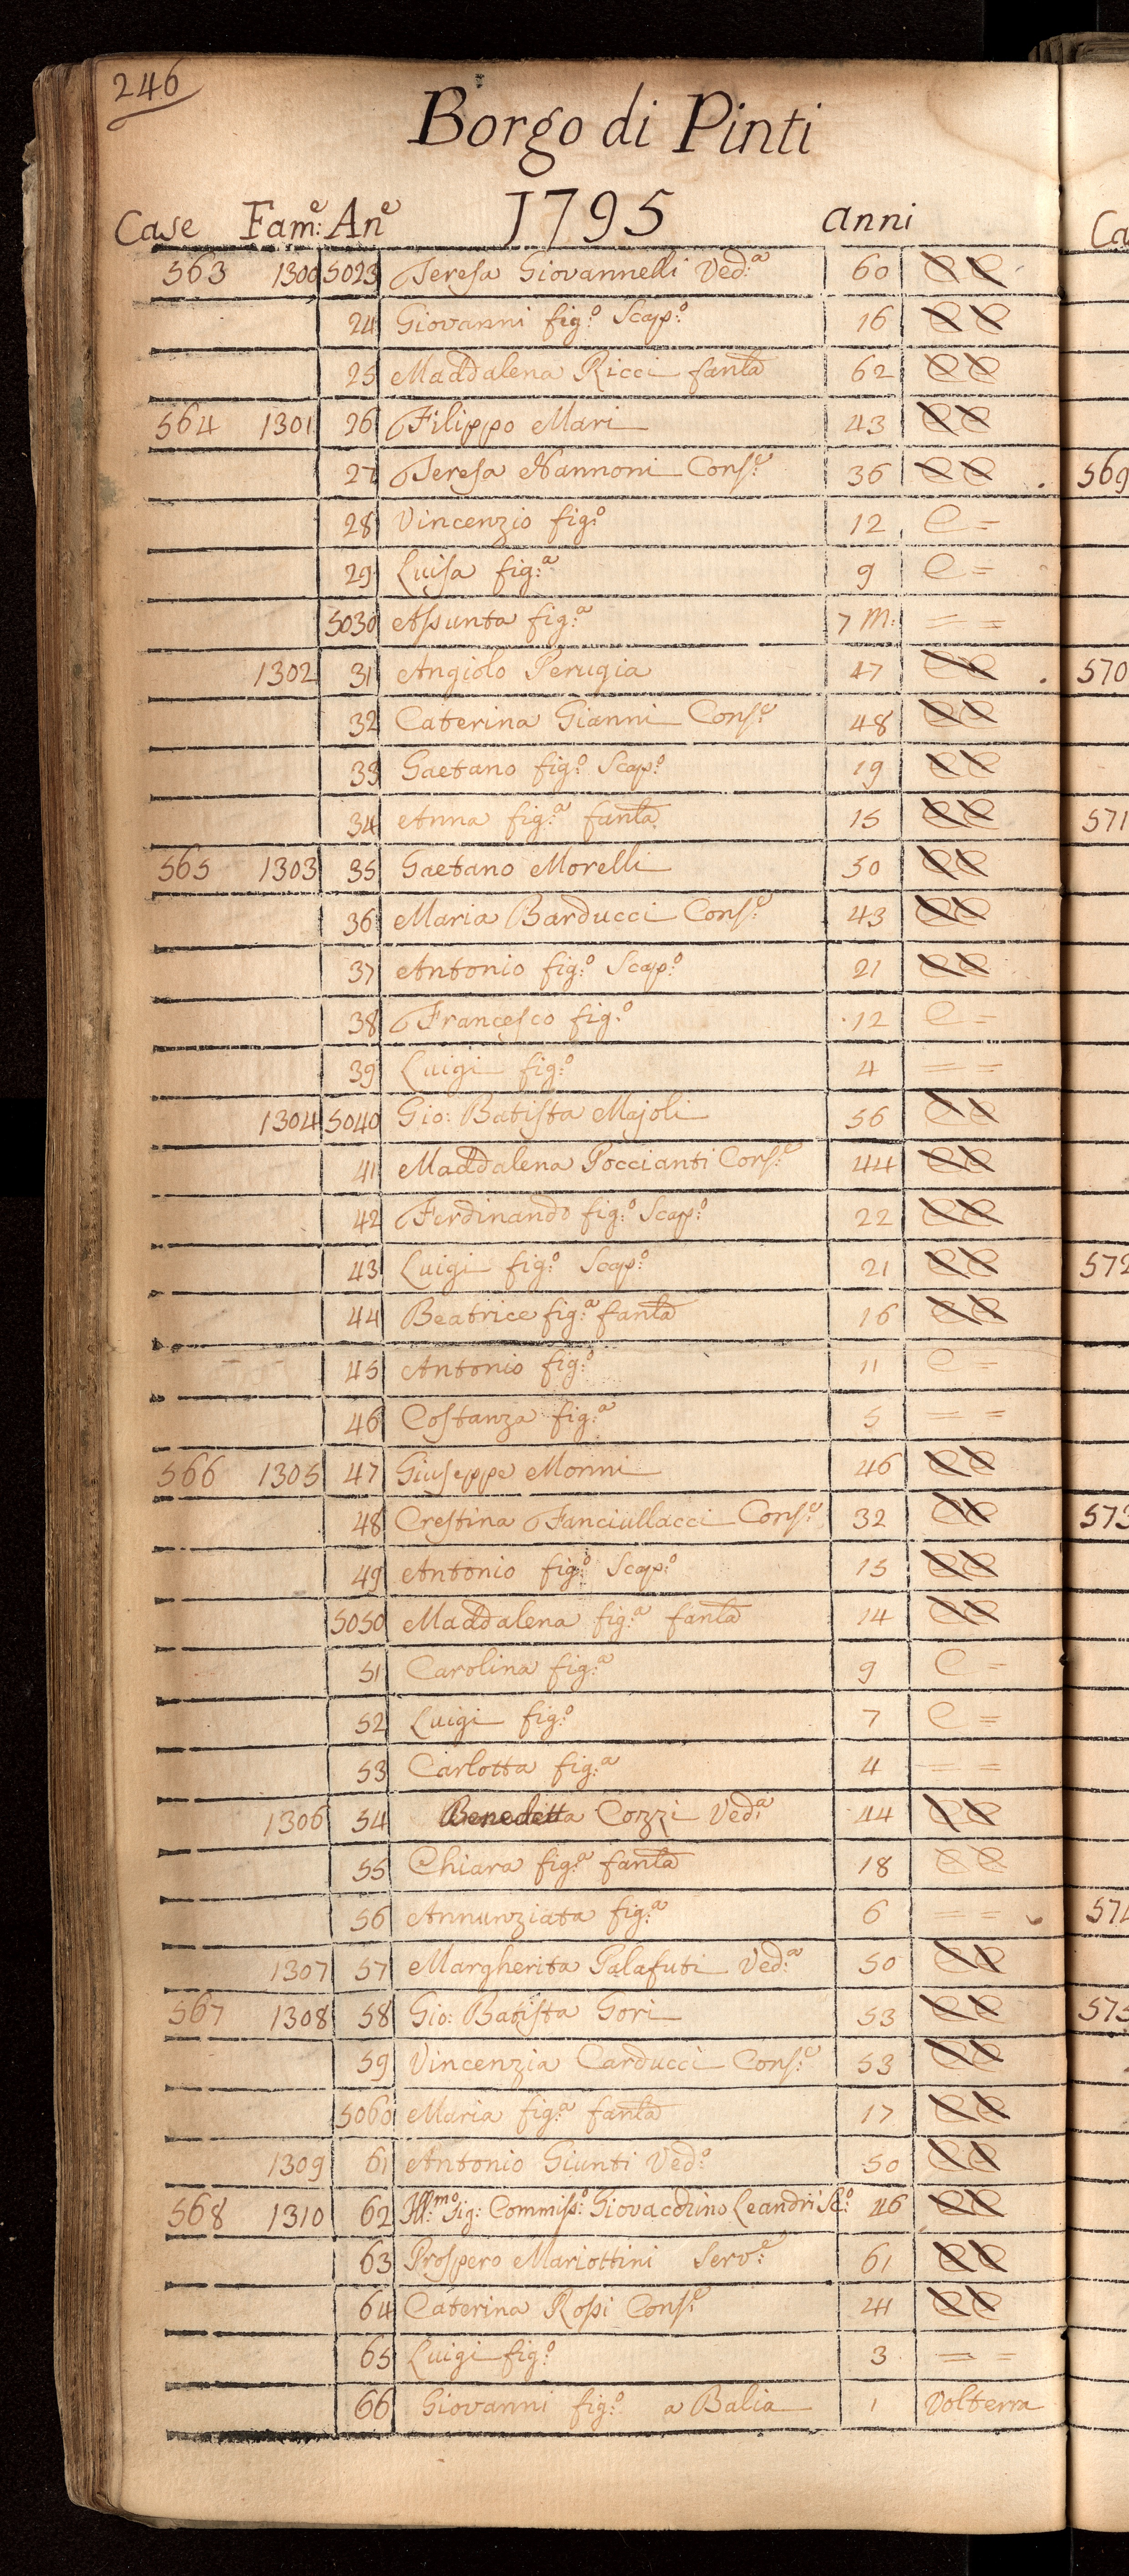 246
Borgo di Pinti
1795
Case Fam:e An:e anni
563 1300 5023 Teresa Giovannelli Ved:a 60 C C
24 Giovanni fig:o Scap:o 16 C C
25 Maddalena Ricci fanla 62 C C
564 1301 26 Filippo Mari 43 C C
27 Teresa Nannoni Cons:e 36 C C
28 Vincenzio fig:o 12 C =
29 Luisa fig:a 9 C =
5030 Assunta fig:a 7 m: = =
1302 31 Angiolo Perugia 47 C C
32 Caterina Gianni Cons:e 48 C C
33 Gaetano fig:o Scap:o 19 C C
34 Anna fig:a fanla 15 C C
565 1303 35 Gaetano Morelli 50 C C
36 Maria Barducci Cons:e 43 C C
37 Antonio fig:o Scap:o 21 C C
38 Francesco fig:o 12 C =
39 Luigi fig:o 4 = =
1304 5040 Gio: Batista Majoli 56 C C
41 Maddalena Poccianti Cons:e 44 C C
42 Ferdinando fig:o Scap:o 22 C C
43 Luigi fig:o Scap:o 21 C C
44 Beatrice fig:a fanla 16 C C
45 Antonio fig:o 11 C =
46 Costanza fig:a 5 = =
566 1305 47 Giuseppe Monni 46 C C
48 Crestina Fanciullacci Cons:e 32 C C
49 Antonio fig:o Scap:o 15 C C
5050 Maddalena fig:a fanla 14 C C
51 Carolina fig:a 9 C =
52 Luigi fig:o 7 C =
53 Carlotta fig:a 4 = =
1306 54 Benedetta Cozzi Ved:a 44 C C
55 Chiara fig:a fanla 18 C C
56 Annunziata fig:a 6 = =
1307 57 Margherita Palafuti Ved:a 50 C C
567 1308 58 Gio: Batista Gori 53 C C
59 Vincenzia Carducci Cons:e 53 C C
5060 Maria fig:a fanla 17 C C
1309 61 Antonio Giunti Ved:o 50 C C
568 1310 62 Ill:mo Sig: Commiss:o Giovacchino Leandri Sc:o 46 C C
63 Prospero Mariottini Serv:e 61 C C
64 Caterina Rossi Cons:e 41 C C
65 Luigi fig:o 3 = =
66 Giovanni fig:o a Balia 1 Volterra
Ca
569
570
571
572
573